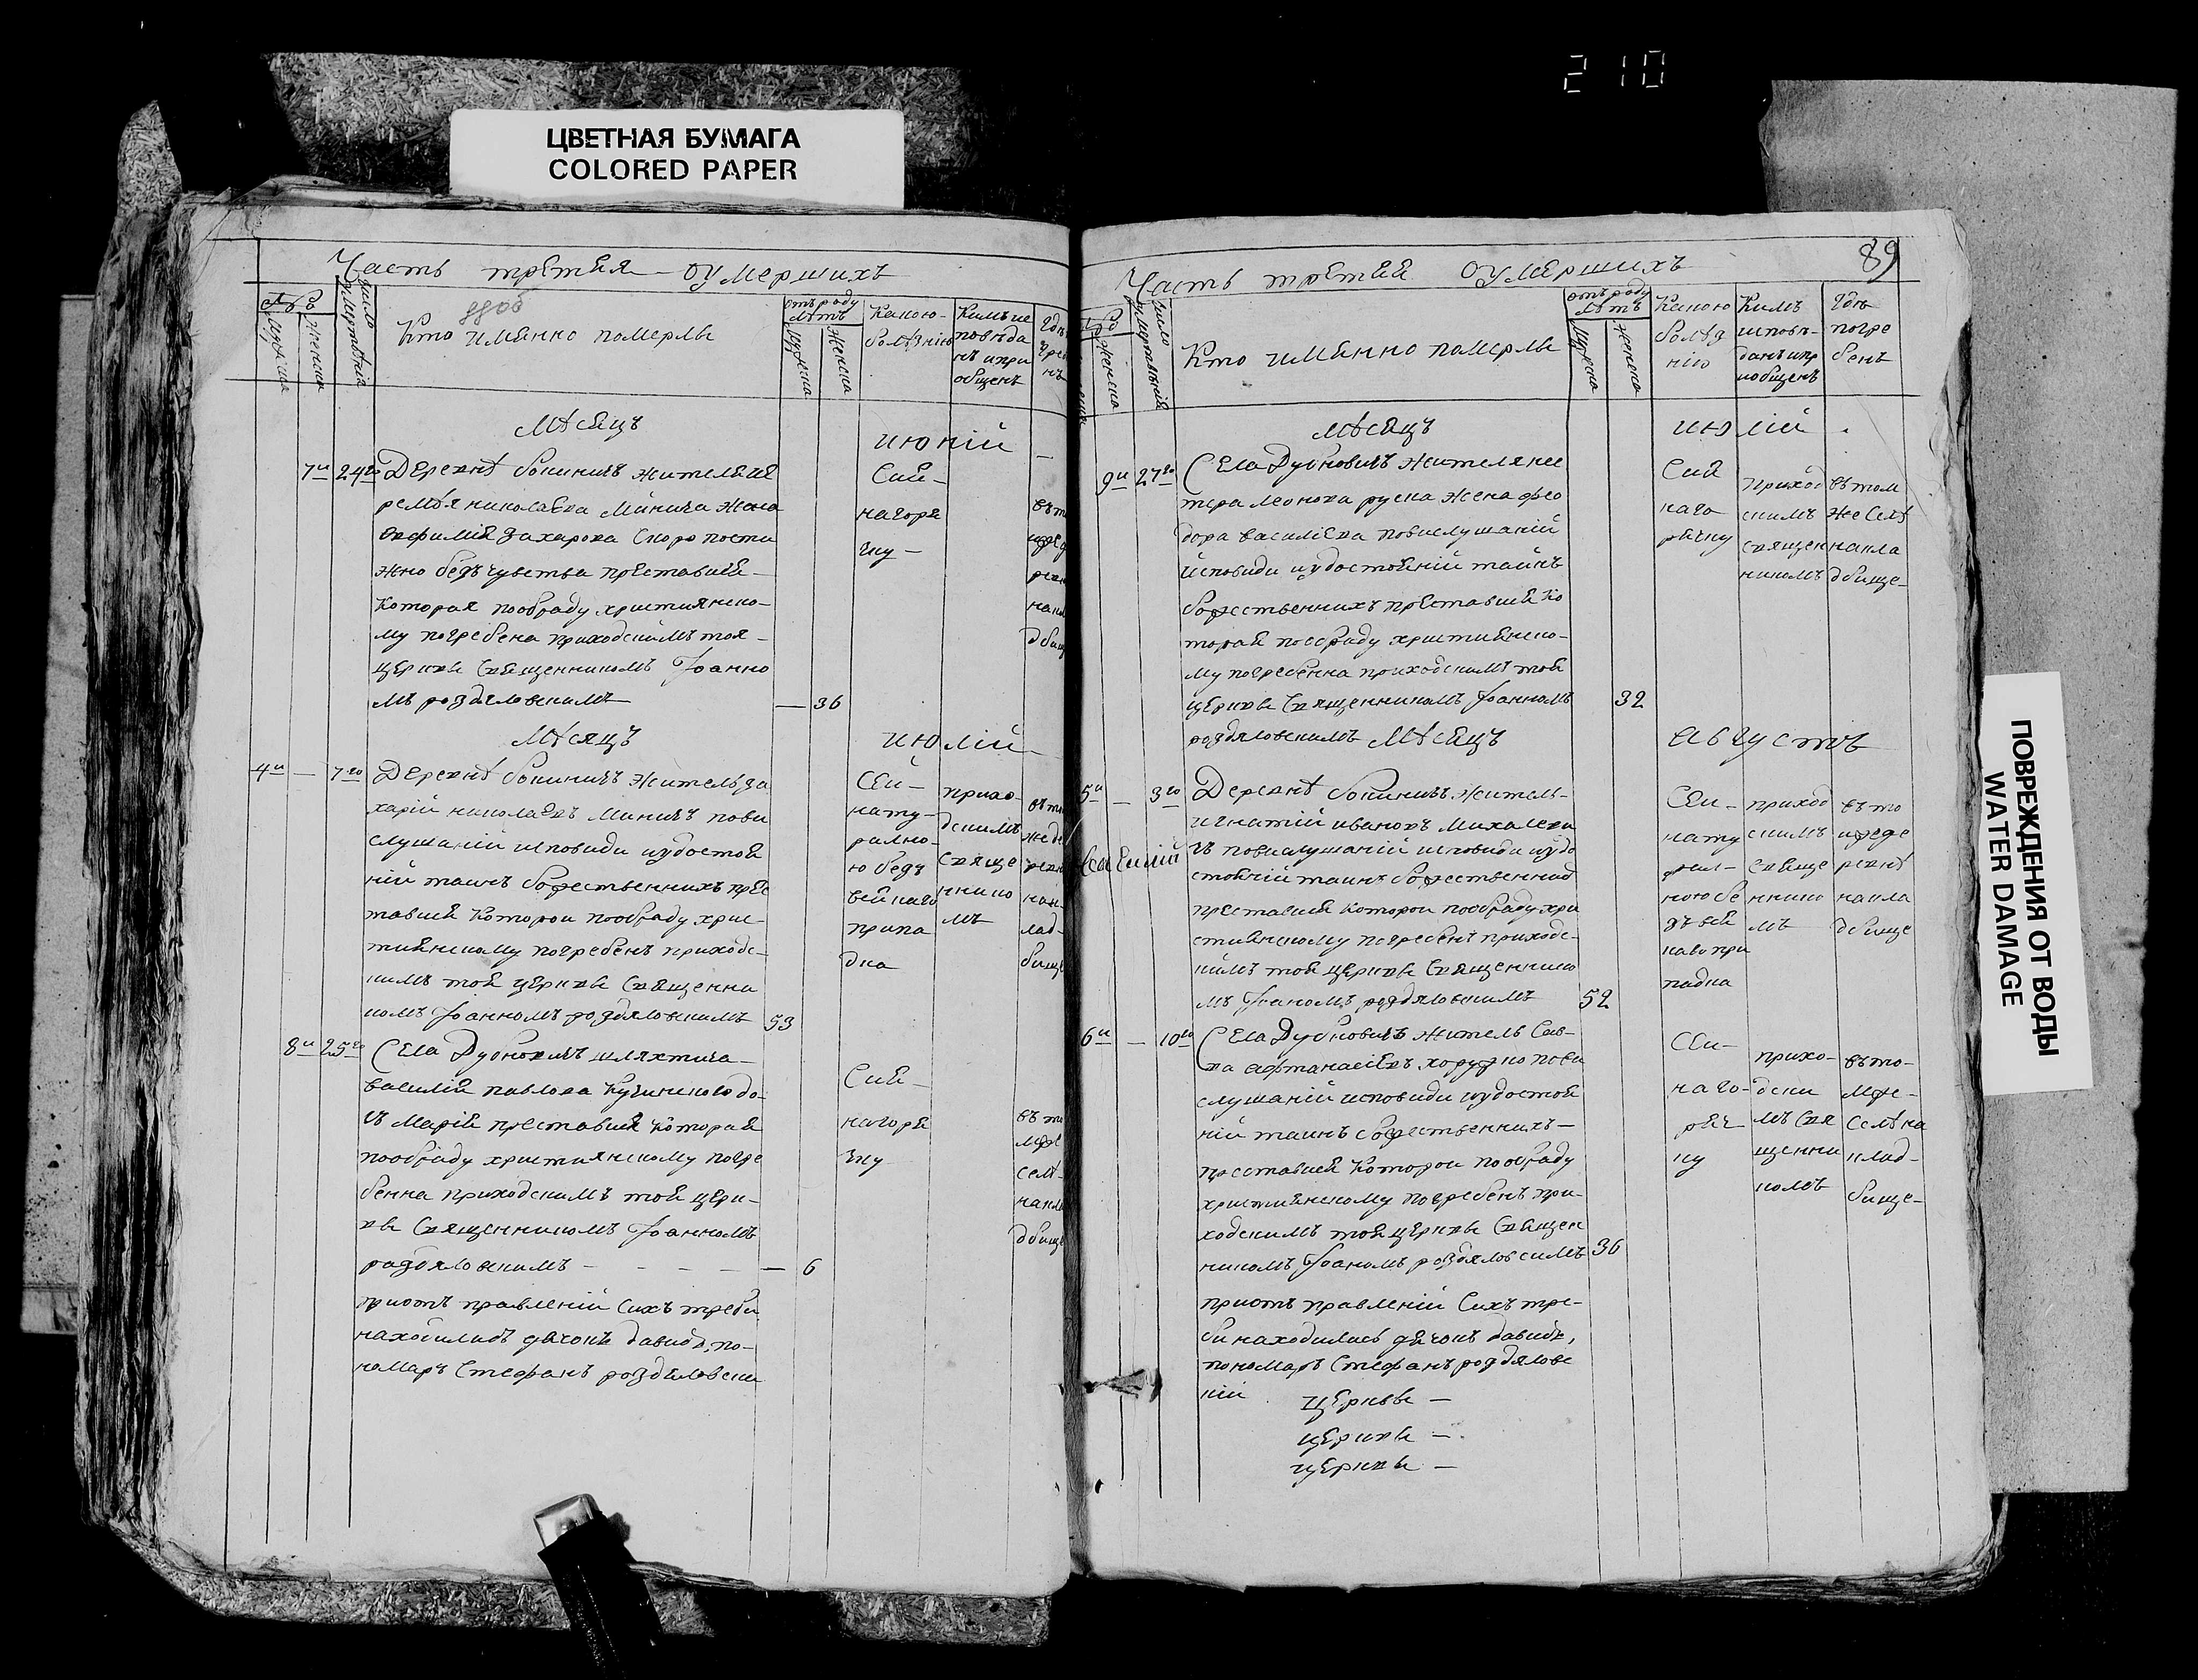 210
ЦВЕТНАЯ БУМАГА
COLORED PAPER
Часть третяя оумершихъ
Кто имянно померлы
отъ роду
лѣтъ
Какою
болѣзнію
Кимъ ис
повѣда
нъ и при
общенъ
Мѣсяцъ июній
7и 24го Деревнѣ Бокиничъ жителя Іе
ремѣя николаева Минича жена
Евфимія Захарова скоро пости
жно безъ чувства преставися
которая пообряду християнско-
му погребена приходскимъ тоя
церкви священникомъ Іоанно
мъ роздяловскимъ — 36
Сия
нагоря
чку
Мѣсяцъ июлій
4и — 7го Деревнѣ Бокиничъ житель за
харій николаевъ Миничъ повы
слушаній исповиди иудостоя
ній таинъ божественнихъ прес
тавися которои пообряду хрис-
тиянскому погребенъ приходс-
кимъ тоя церкви священни
комъ Іоанномъ роздяловскимъ 53
Сеи
нату-
рално-
ю безъ
всѣакаго
припа
дка
прихо-
дскимъ
свяще
ннико
мъ
8и 25го Села Дубновичъ шляхтича
василія павлова Кучинского до-
чъ Марія преставися которая
пообряду християнскому погре
бенна приходскимъ тоя церк-
ви священникомъ Іоанномъ
роздяловскимъ — 6
Сия
нагоря
чку
приотъ правленій сихъ треби
находилисъ дячокъ давидъ, по-
номаръ Стефанъ роздяловски
Часть третяя оумершихъ 89
Кто имянно померлы
отъ роду
лѣтъ
Какою
болѣз
нію
Кимъ
исповѣ-
данъ ипр
иобщенъ
Гдѣ
погре
бенъ
Мѣсяцъ июлій
9и 27го Села Дубновичъ жителя пе
тра леонова руска жена фео
дора василіева повислушаній
исповиди иудостояній таинъ
божественнихъ преставися ко
торая пообряду християнско-
му погребенна приходскимъ тоя
церкви священникомъ Іоанномъ 32
роздяловскимъ
Сия
наго
рячку
приход
скимъ
священ
никомъ
въ том
же селѣ
накла
дбище
Мѣсяцъ августъ
5и — 3го Деревнѣ Бокиничъ житель
игнатій ивановъ Михалеви
чъ повислушаній исповиди иудо
стояній таинъ божественних
преставися которои пообряду хри
стиянскому погребенъ приходс-
кимъ тоя церкви священнико
мъ Іоаномъ роздяловскимъ 52
Сеи
нату
рал-
ною бе
зъ вся
каво при
падка
приход
скимъ
свяще
ннико
мъ
въ то
иже де
ревнѣ
накла
дбище
6и — 10го Села Дубновичъ житель Сав-
ва афтанасіевъ хоружко повы
слушаній исповиди иудостоя
ній таинъ божественнихъ
преставися которои пообряду
християнскому погребенъ при-
ходскимъ тоя церкви священ
никомъ Іоаномъ роздяловскимъ 36
Сеи
наго-
ряч-
ку
прихо-
дски
мъ свя
щенни
комъ
въ то-
мже
селѣ на
клад-
бище
приотъ правленій сихъ тре-
би находились дячокъ давидъ,
пономаръ Стефанъ роздяловс
кій
церкви
церкви
церкви
ПОВРЕЖДЕНИЯ ОТ ВОДЫ
WATER DAMAGE